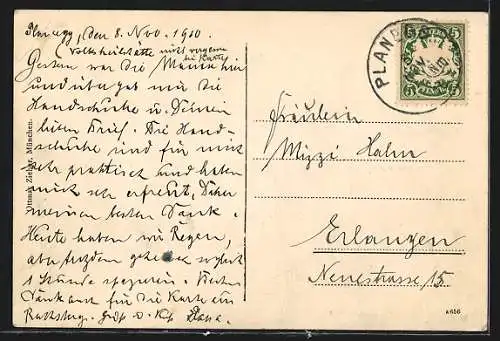 Planegg, den 8. Nov. 1910.
Volksheilstätte nicht vergessen
Gestern war die Mama hier
und übergab mir die
Handschuhe u. Deinen
lieben Brief. Die Hand-
schuhe sind für mich
sehr praktisch und haben
mich sehr erfreut, Daher
meinen besten Dank.
Heute haben wir Regen,
aber trozdem gehe
1 Stunde spazieren. Vielen
Dank auch für die Karte
Rathsberg. Gruß u. Kuß
Ottmar Zieher, München.
PLANE
5 5
5 5
Fräulein
Mizzi Hahn
Erlangen
Neuestrasse 15.